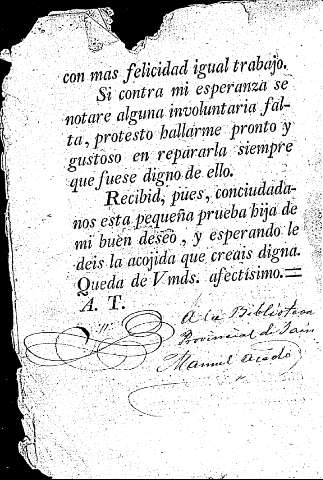 con mas felicidad igual trabajo.
Si contra mi esperanza se
notare alguna involuntaria fal-
ta, protesto hallarme pronto y
gustoso en repararla siempre
que fuese digno de ello.
Recibid, pues, conciudada-
nos esta pequeña prueba hija de
mi buen deseo, y esperando le
deis la acojida que creais digna.
Queda de Vmds. afectísimo.=
A. T.
A la Biblioteca
Provincial de Jaen
Manuel Acedo